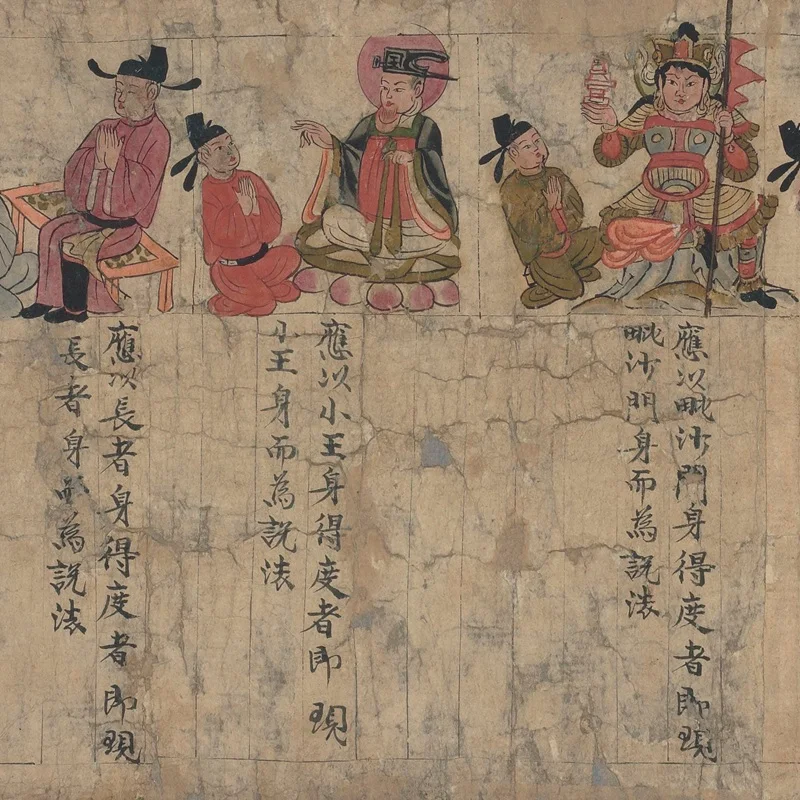 應以毗沙門身得度者即現
毗沙門身而為說法
應以小王身得度者即現
小王身而為說法
應以長者身得度者即現
長者身而為說法